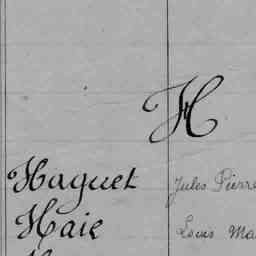 H
Haguet Jules Pierre
Haie Louis Ma